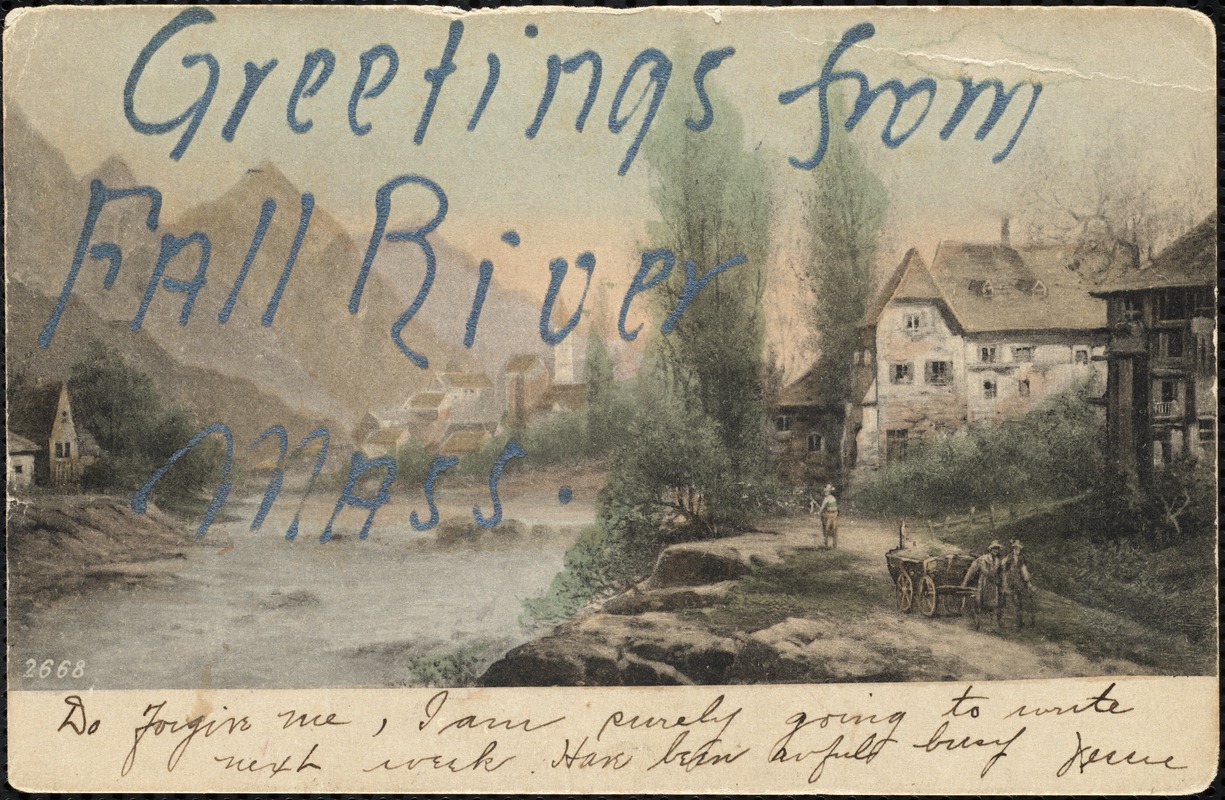 Greetings from
Fall River
Mass.
2668
Do forgive me, I am surely going to write
next week. Have been awfuly busy Jessie